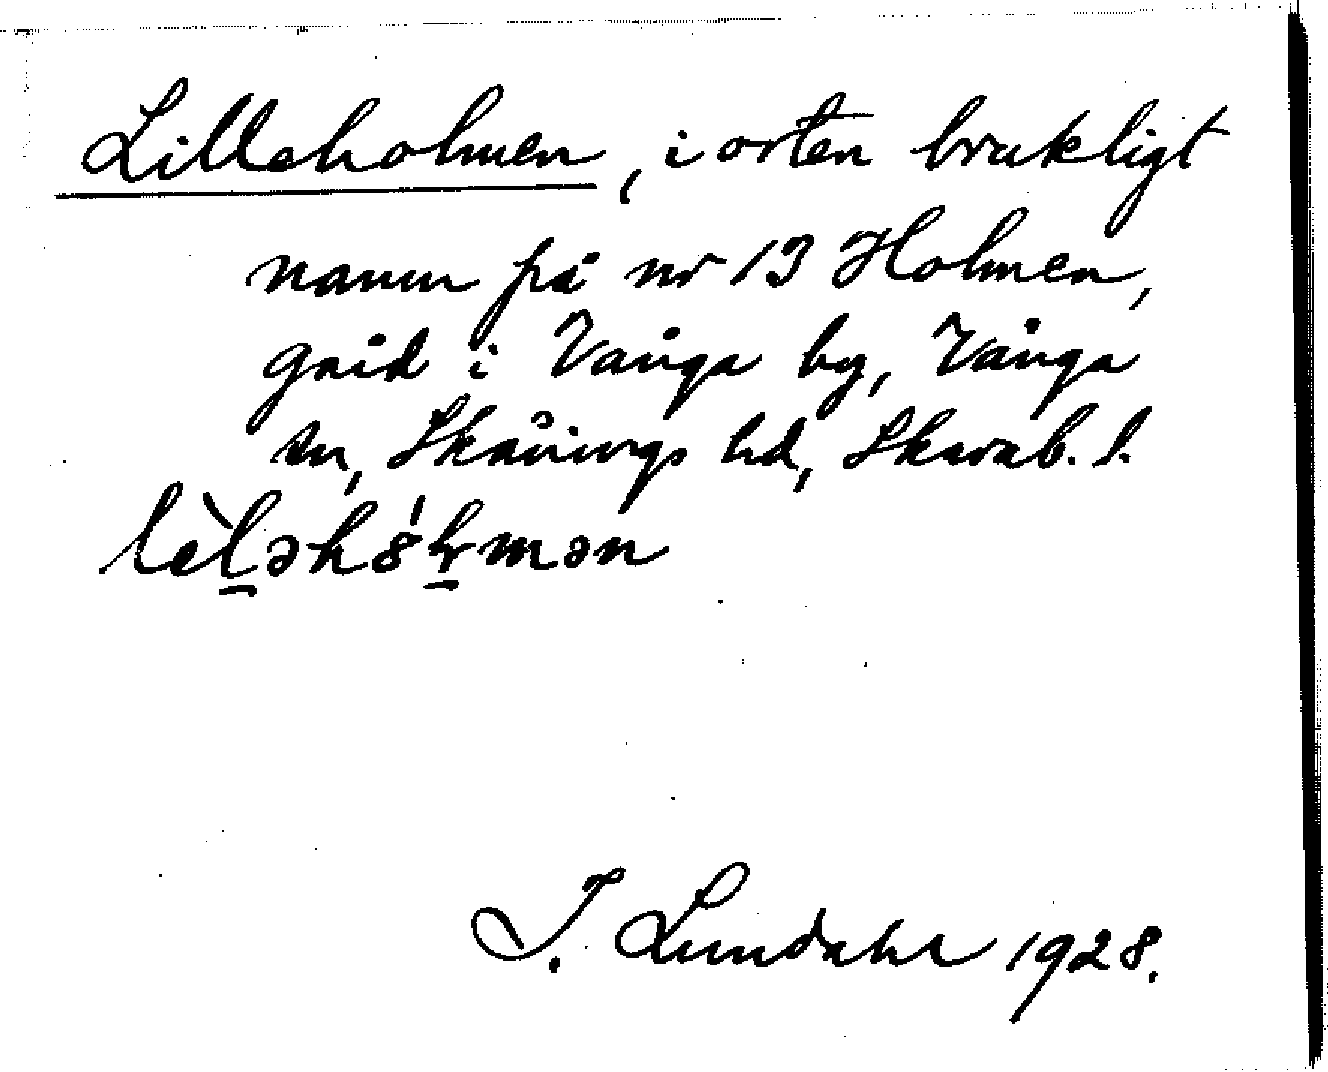 Lilleholmen, i orten brukligt
namn på nr 13 Holmen,
gård i Vånga by, Vånga
sn, Skånings hd, Skarab. l.
I. Lundahl 1928.